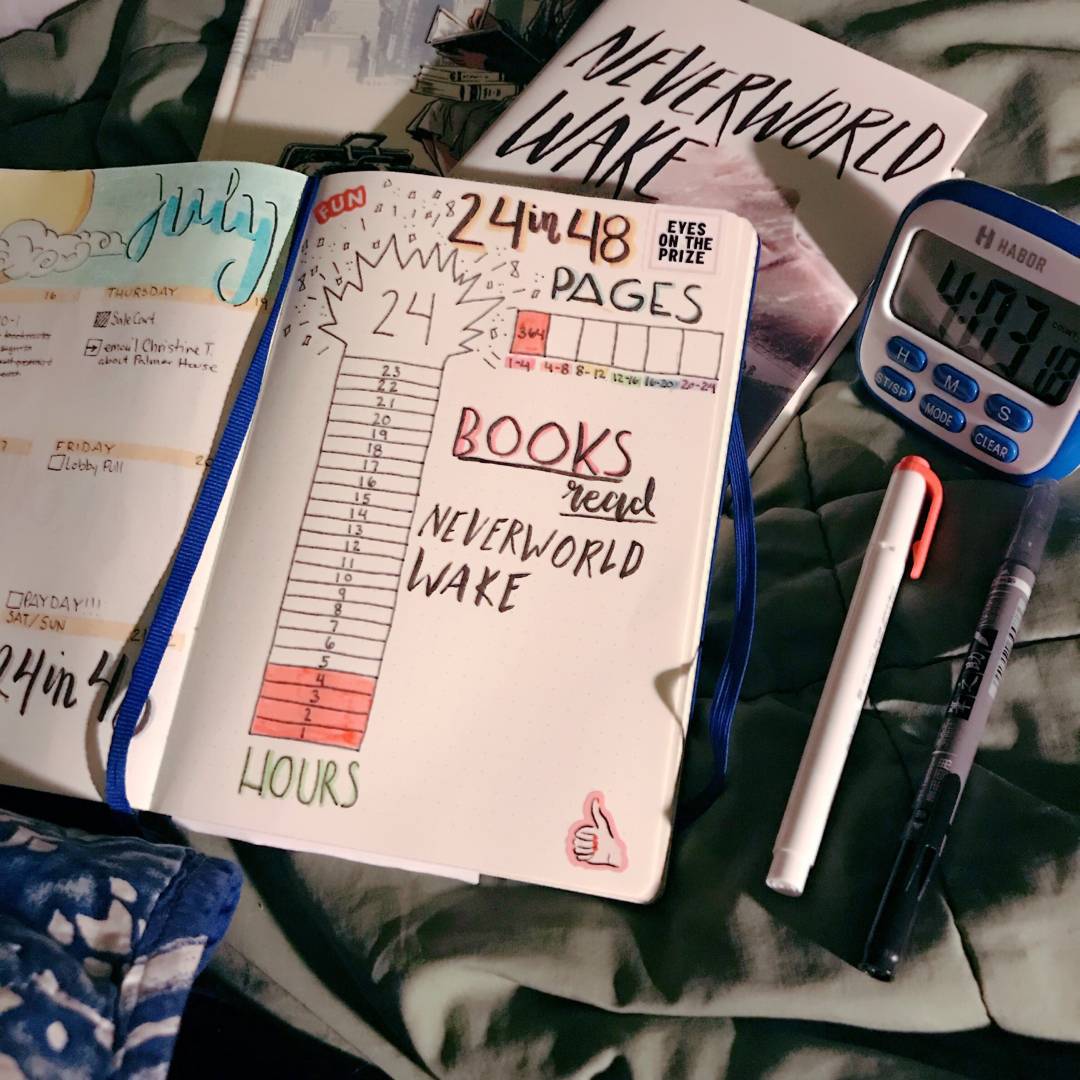 NEVERWORLD
WAKE
July
16
THURSDAY
19
SaleCart
email Christine T.
about Palmer House
FRIDAY
Lobby Pull
PAYDAY!!!
SAT/SUN
21
24in 48
FUN
24in48
EYES
ON THE
PRIZE
PAGES
364
1-4 4-8 8-12 12-16 16-20 20-24
24
23
22
21
20
19
18
17
16
15
14
13
12
11
10
9
8
7
6
5
4
3
2
1
HOURS
BOOKS
read
NEVERWORLD
WAKE
HABOR
4:03 18
H M S
ST/SP MODE CLEAR